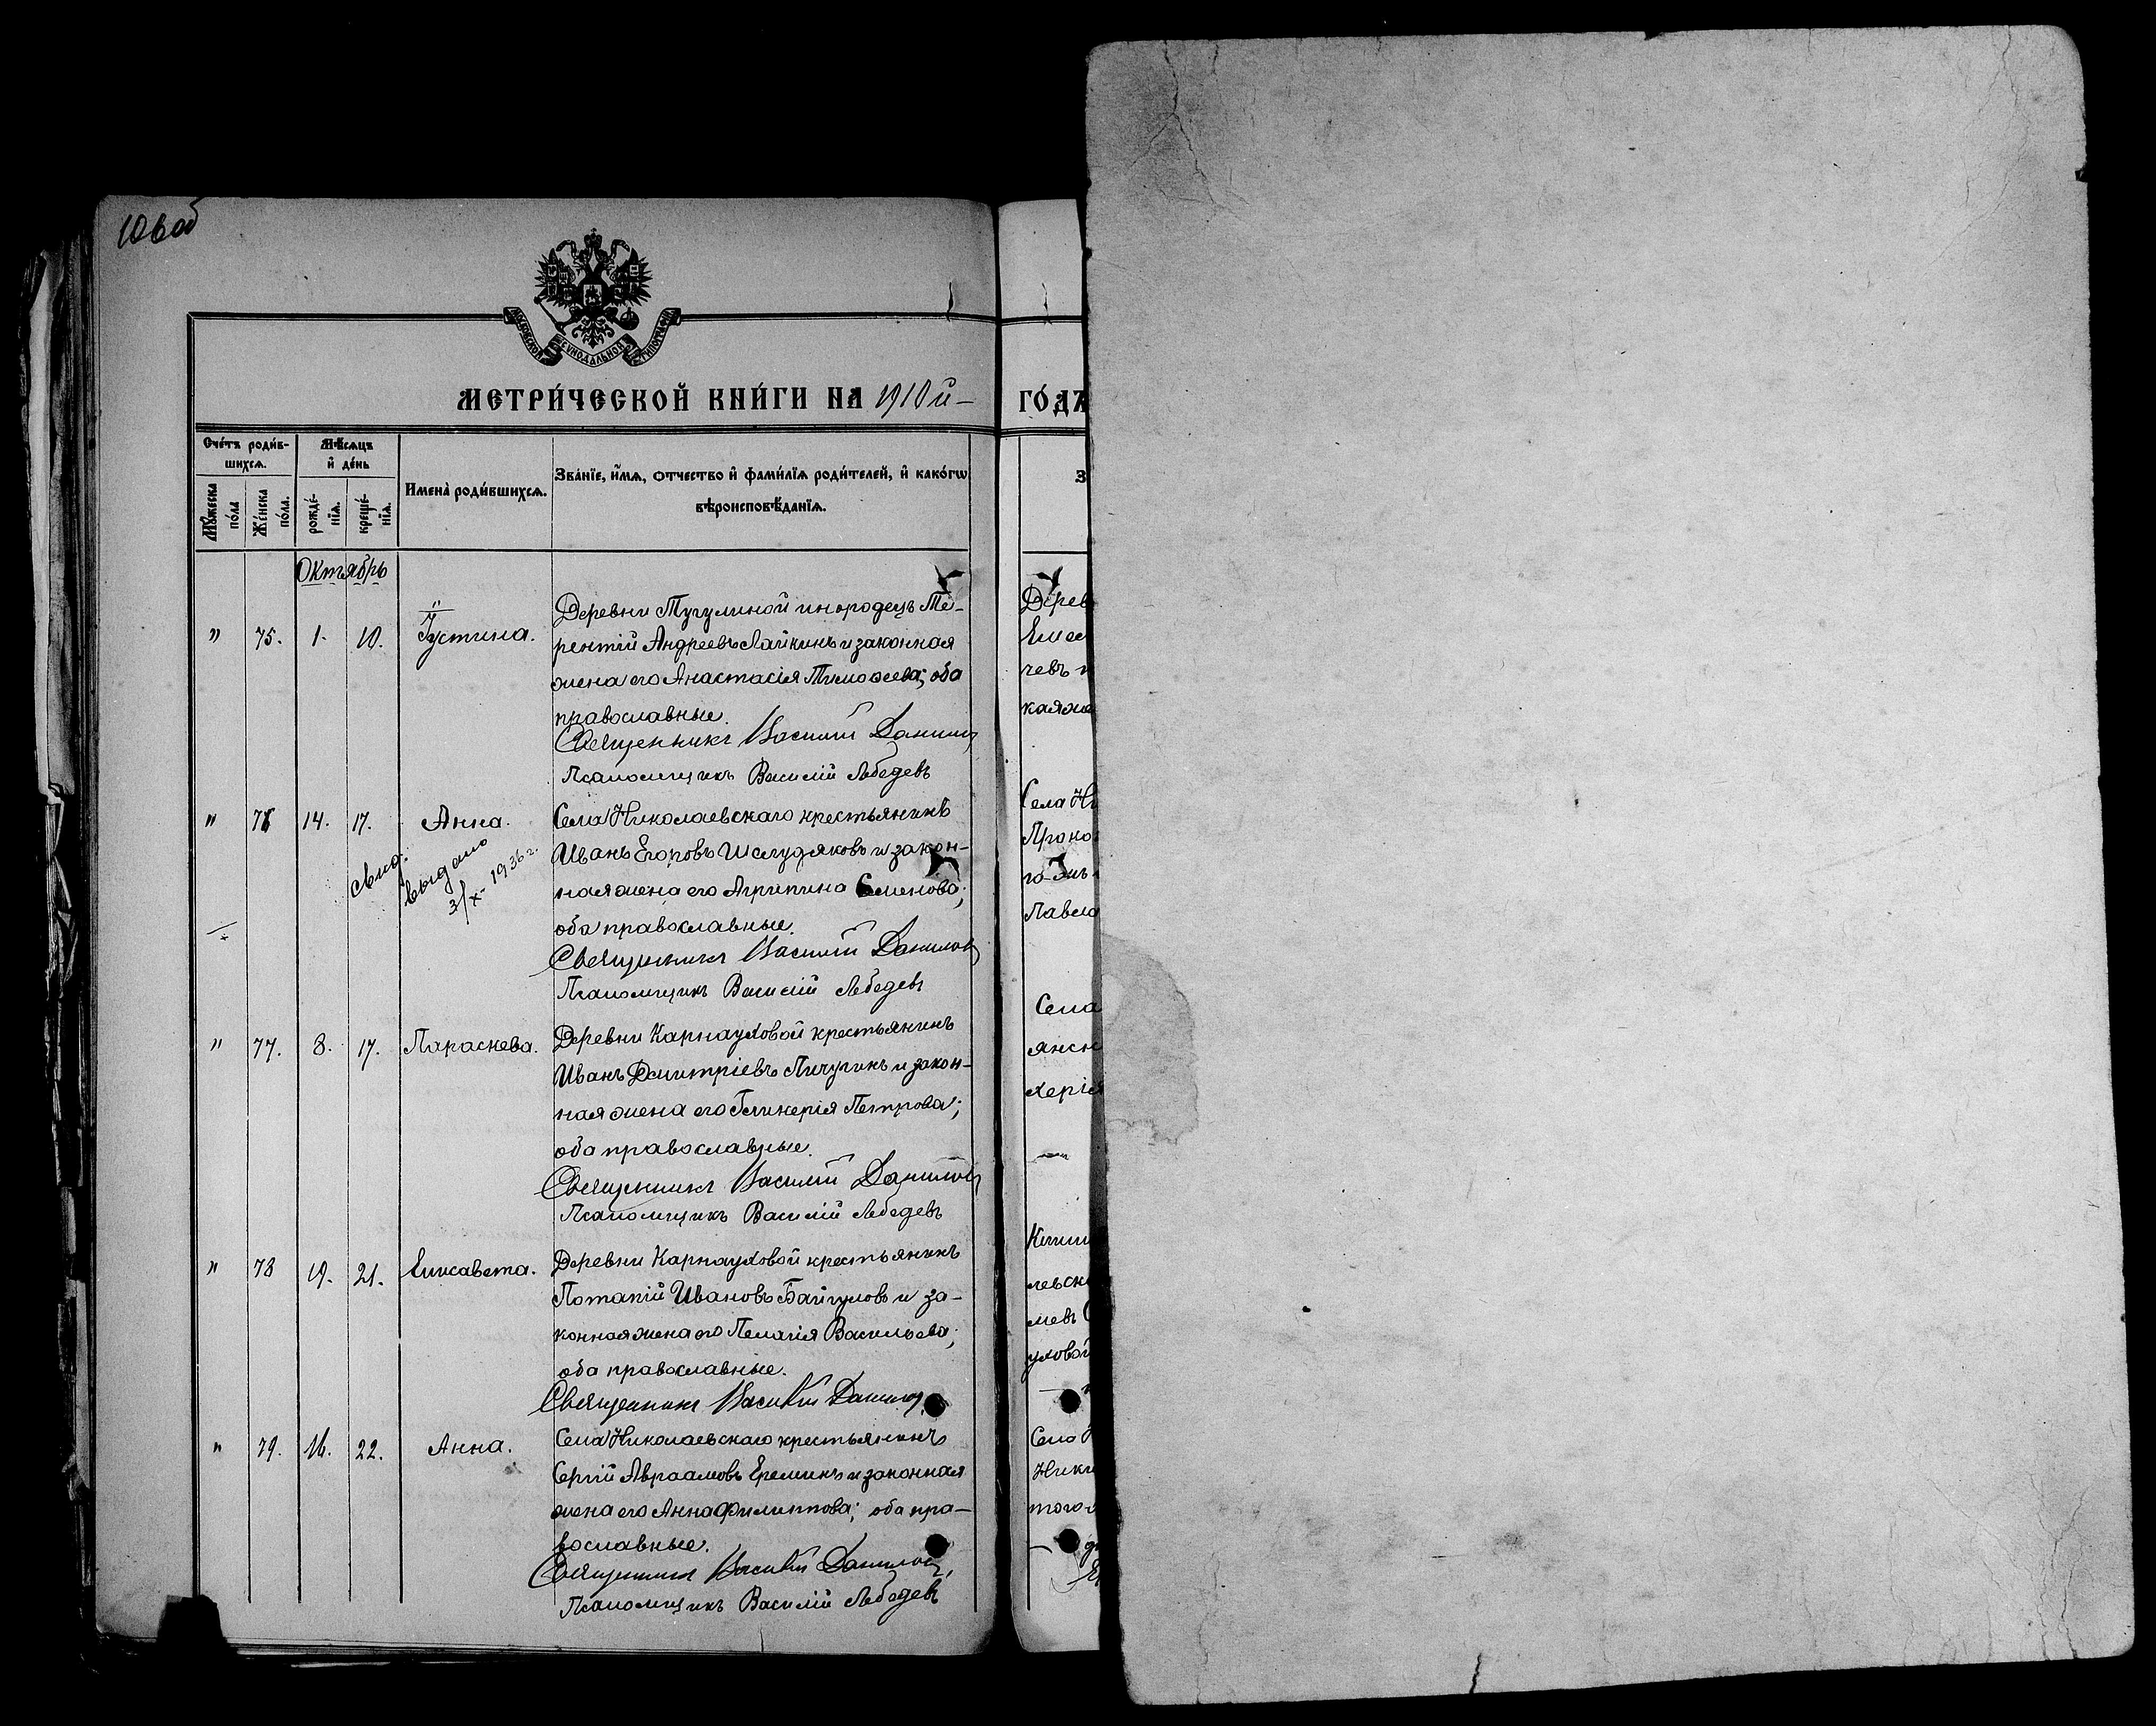 106об
МОСКОВСКОЙ СѴНОДАЛЬНОЙ ТИПОГРАФІИ
МЕТРИ́ЧЕСКОЙ КНИ́ГИ НА 1910й–
ГО́ДЪ
Сче́тъ роди́в-
шихсѧ.
Мѣ́сѧцъ
и҆ де́нь
Мꙋ́жеска по́ла
Же́нска по́ла.
рожде́-
нїѧ.
креще́-
нїѧ.
Имена̀ роди́вшихсѧ.
Зва́нїе, и҆́мѧ, ѻтчество и҆ фами́лїѧ роди́телей, и҆ како́гѡ
вѣроисповѣ́данїѧ.
Октябрь
" 75. 1. 10. Іустина.
Деревни Тугулиной инородецъ Те-
рентій Андреевъ Лайкинъ и законная
жена его Анастасія Тимоѳеева; оба
православные.
Священникъ Василій Данилов
Псаломщикъ Василій Лебедевъ
" 76 14. 17. Анна.
свид. выдано
3/X-1936 г.
Села Николаевскаго крестьянинъ
Иванъ Егоровъ Шелудяковъ и закон-
ная жена его Агрипина Семенова;
оба православные.
Священникъ Василій Данилов
Псаломщикъ Василій Лебедевъ
" 77. 8. 17. Параскева.
Деревни Карнауховой крестьянинъ
Иванъ Димитріевъ Пичугинъ и закон-
ная жена его Гликерія Петрова;
оба православные.
Священникъ Василій Данилов
Псаломщикъ Василій Лебедевъ
" 78 19. 21. Елисавета.
Деревни Карнауховой крестьянинъ
Потапій Ивановъ Байгуловъ и за-
конная жена его Пелагія Васильева;
оба православные.
Священникъ Василій Данилов
" 79. 16. 22. Анна.
Села Николаевскаго крестьянинъ
Сергій Авраамовъ Ереминъ и законная
жена его Анна Филиппова; оба пра-
вославные.
Священникъ Василій Данилов
Псаломщикъ Василій Лебедевъ
З
Дерев
чевъ
кая же
Села Ни
Проко
Павла
Села
янск
херія
левск
уховой
Села
Ники
того